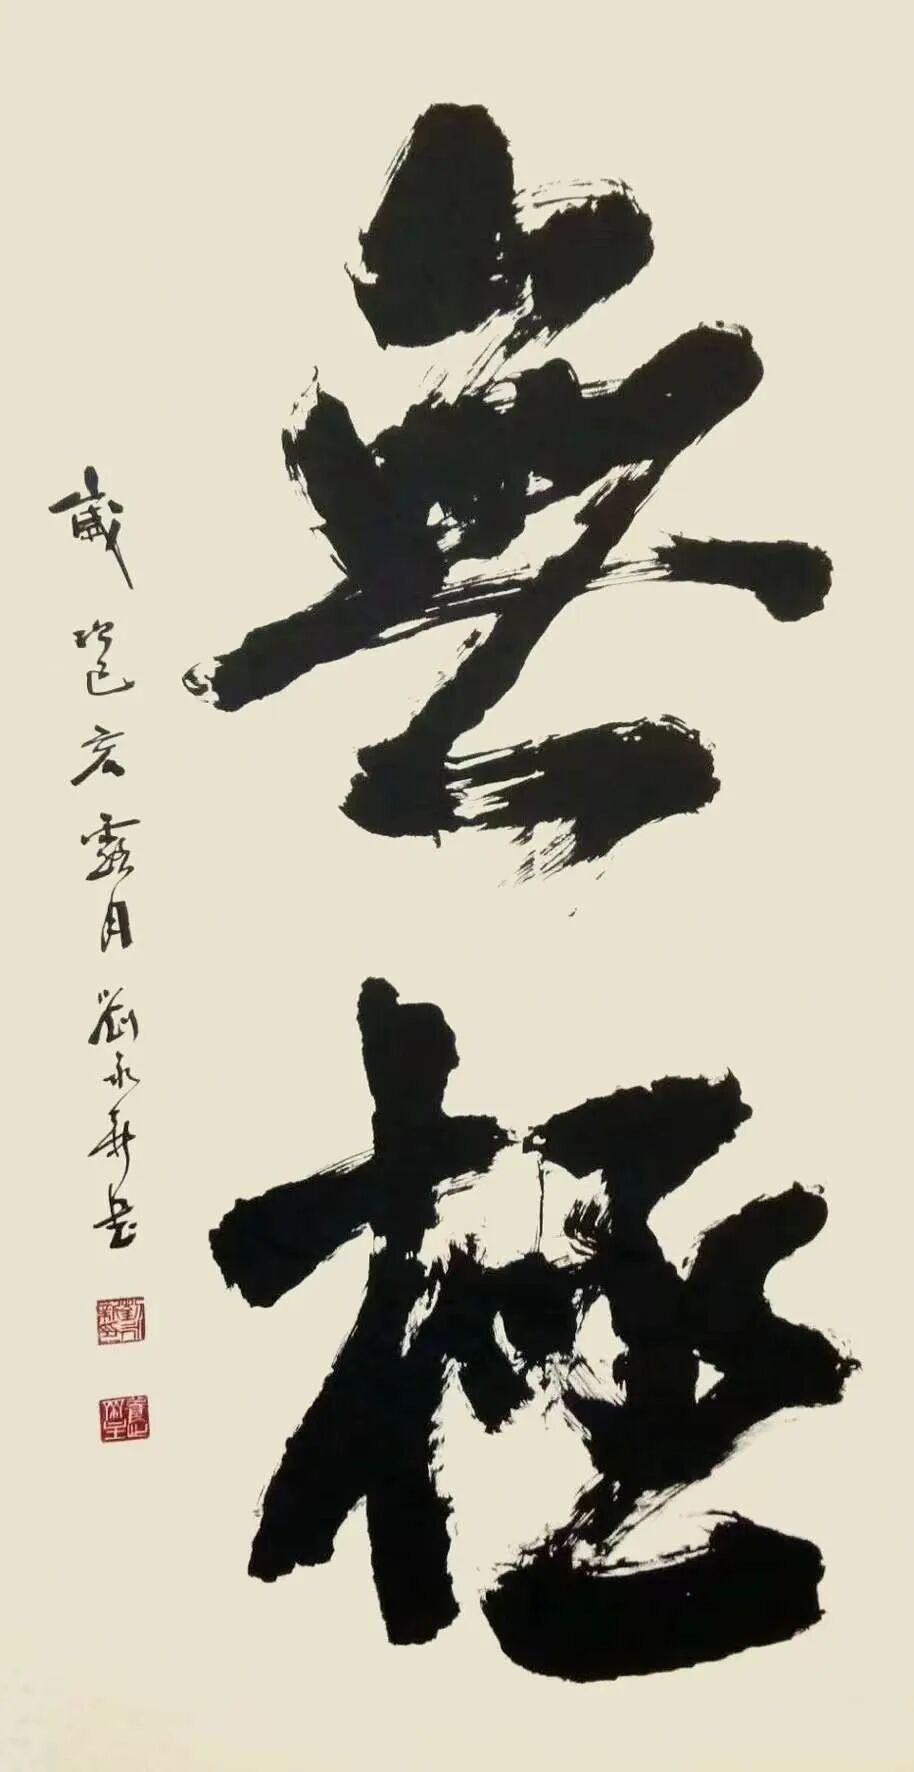 無極
歲於己亥露月劉永華書